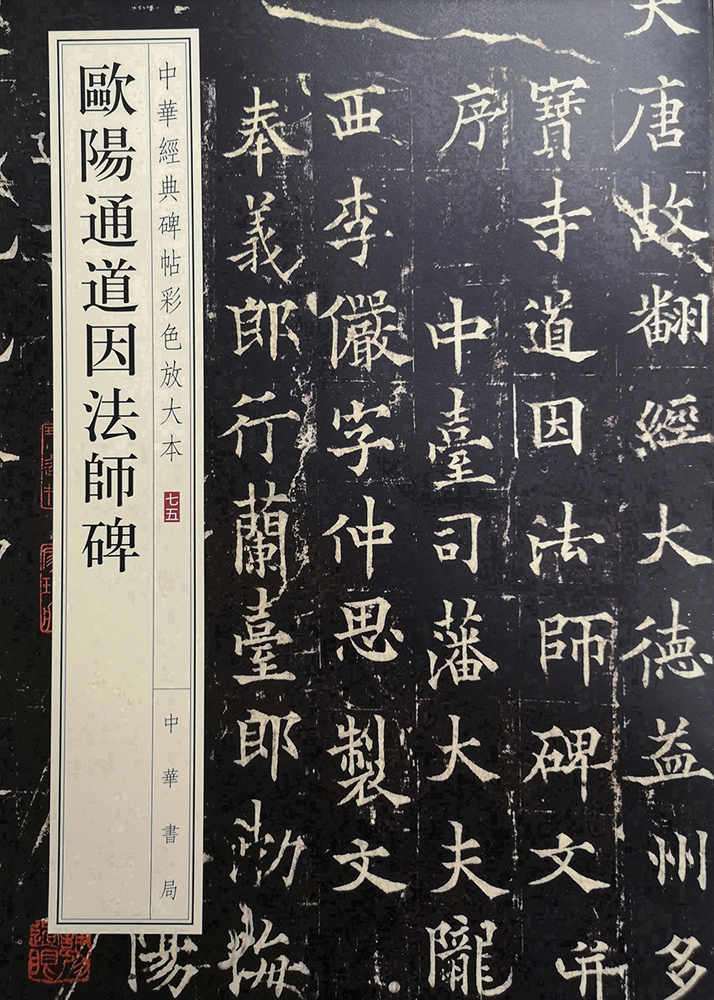 大唐故翻經大德益州多
寶寺道因法師碑文并
序 中臺司藩大夫隴
西李儼字仲思製文
奉義郎行蘭臺郎渤海
陽
中華經典碑帖彩色放大本 七五
中華書局
歐陽通道因法師碑